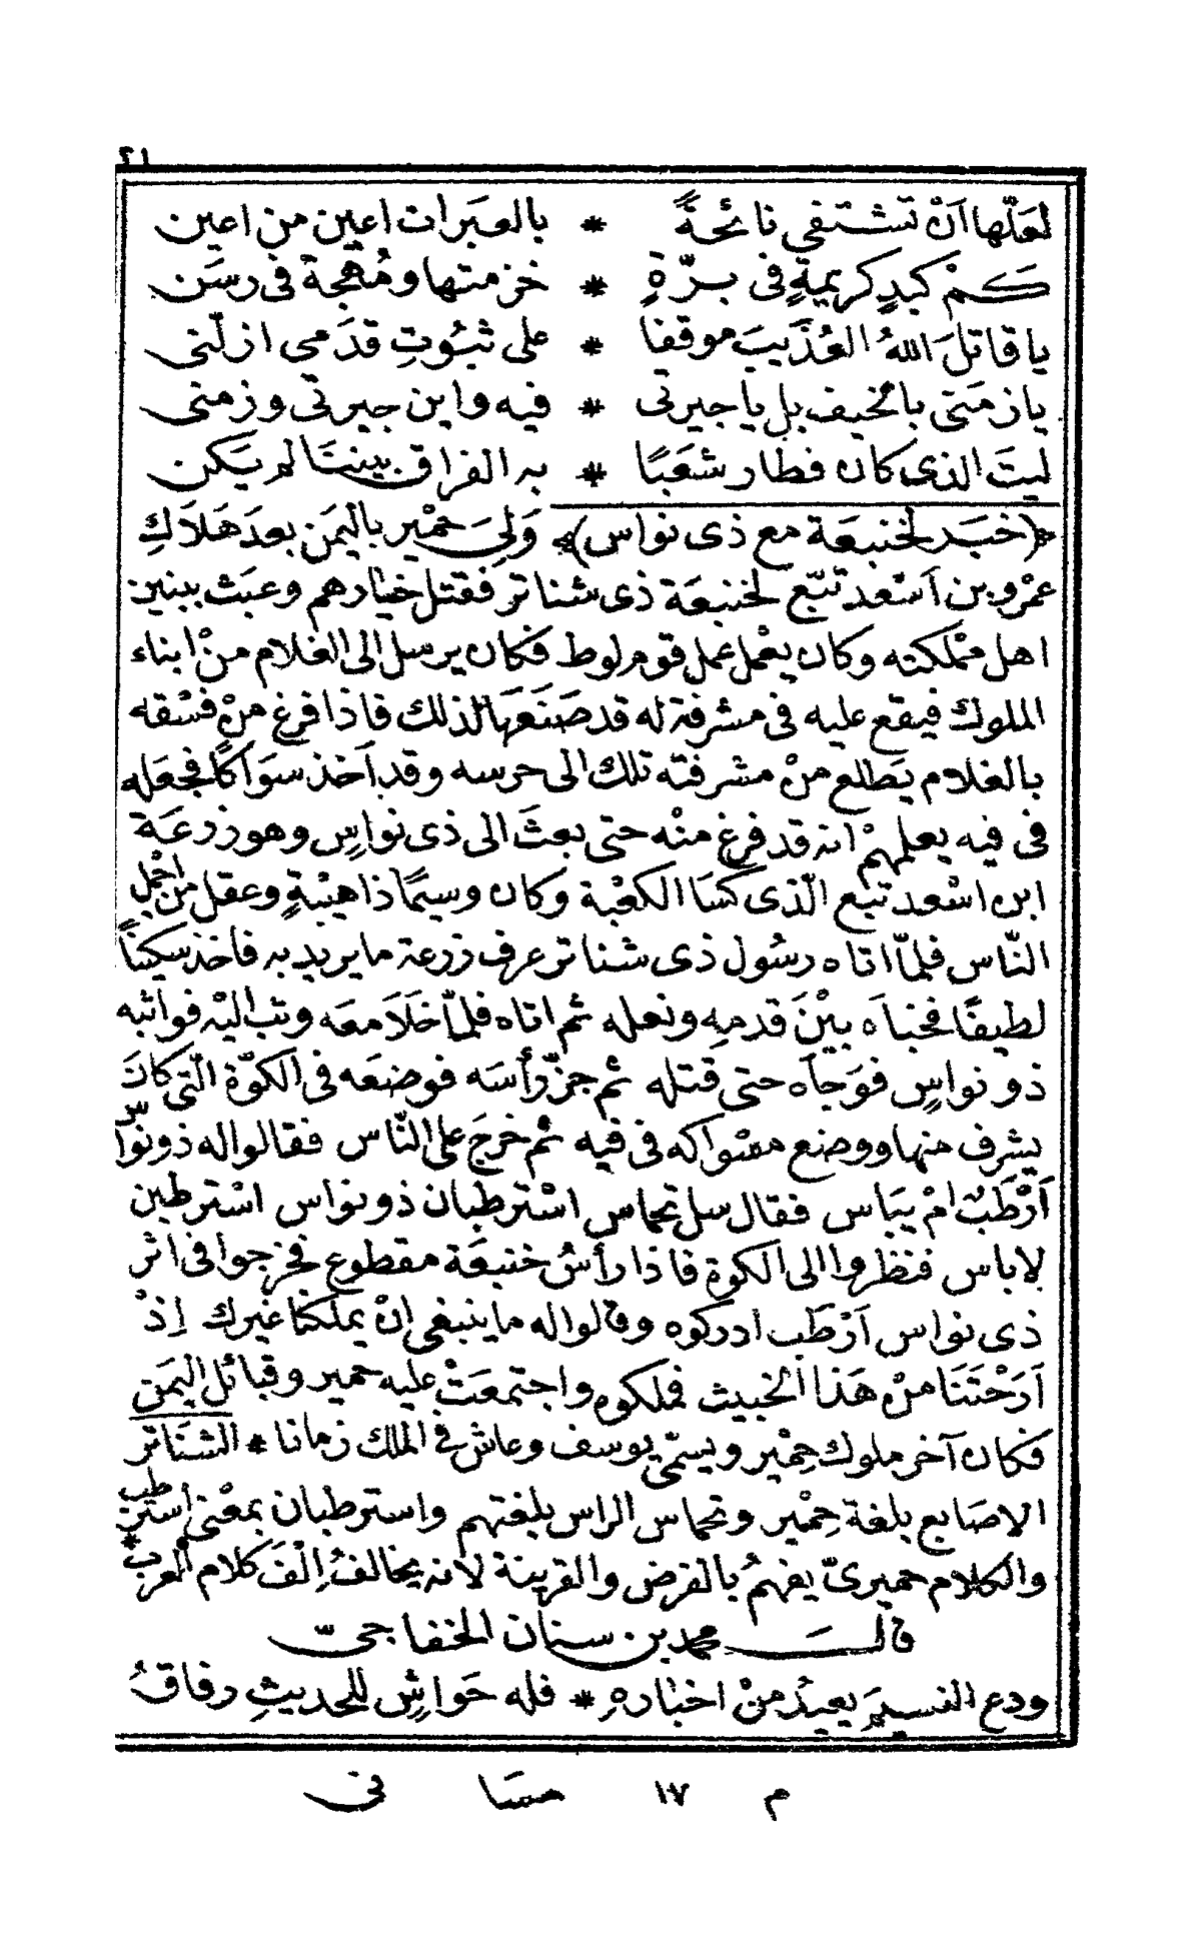 ٢١
لعَلّها اَنْ تشتفي نائحةً * بالعبَرات اعين من اعين
كمْ كبدٍ كريمةٍ فى بـرّةٍ * خزمتها ومُهجة فى رسَن
يا قاتلَ اللهُ العُذَيبَ موقفا * على ثبُوتِ قدَمي ازلّنى
يا زمَنى بالخيف بل يا جيرتى * فيه واين جيرتى وزمنى
ليتَ الذى كان فطار شعَبًا * به الفراق بيننَا لم يَكن
﴿خبَر لخنيعَة مع ذى نواس﴾ وَلىَ حمْير باليمَن بعدَ هَلاَكِ
عمْرو بن اَسْعد تبّع لخنيعَة ذى شناتر فقتل خيارهم وعبَث ببنين
اهل مملكته وكان يعْمل عمل قوم لوط فكان يرسل الى الغلام منْ ابناء
الملوك فيقع عليه فى مشرفة له قد صَنَعَهَا لذلك فاذا فرغ منْ فسْقه
بالغلام يَطلع منْ مشرفته تلك الى حرسه وقد اَخذ سوَاكًا فجعَله
فى فيه يعلمهمْ انه قد فرغ منْه حتى بعثَ الى ذى نواسٍ وهو زرعَة
ابن اسْعد تبّع الّذى كسَا الكعْبة وكان وسيمًا ذا هيْبةٍ وعقل من اجْمل
النّاس فلمّا اتاه رسُول ذى شناتر عرف زرعة ما يريد به فاخذ سكينًا
لطيفًا فخباَه بيْنَ قدمهِ ونعله ثم اتاه فلمّا خَلاَ معَه وثب اليْه فواثبه
ذو نواسٍ فوَجاَه حتى قتله ثم جزّ رأسَه فوضعَه فى الكوّة الّتى كانَ
يشرف منها ووضع مسْواكه فى فيه ثم خرجَ على النّاس فقالوا له ذو نوّاس
اَرْطَبٌ امْ يبَاس فقال سل نحماس اسْترطبان ذو نواس استرطبن
لاباس فنظروا الى الكوة فاذا رأسُ خنيعَة مقطوع فخرجوا فى اثر
ذى نواس اَرْطَب ادركوه وقالوا له ما ينبغى انْ يملكنا غيرك اِذْ
اَرَحْتَنَا منْ هَذا الخبيث فملكوه واجتمعَتْ عليه حمير وقبائل اليَمن
فكان آخر ملوك حِمْير ويسمّى يوسف وعاش فى الملك زمانا * الشنَاتر
الاصَابع بلغة حِمْير ونحماس الراس بلغتهم واسترطبان بمعْنى استرطب
والكلام حميرىّ يفهمُ بالفرض والقرينة لانه يخالفُ اِلْفَ كلام العرب *
قالــَــ محمد بن سنان الخفاجىّ
ودع النسيمَ يعيدُ منْ اخبارهِ * فله حَواشٍ للحديثِ رقاقُ
م ١٧ مسَا فى